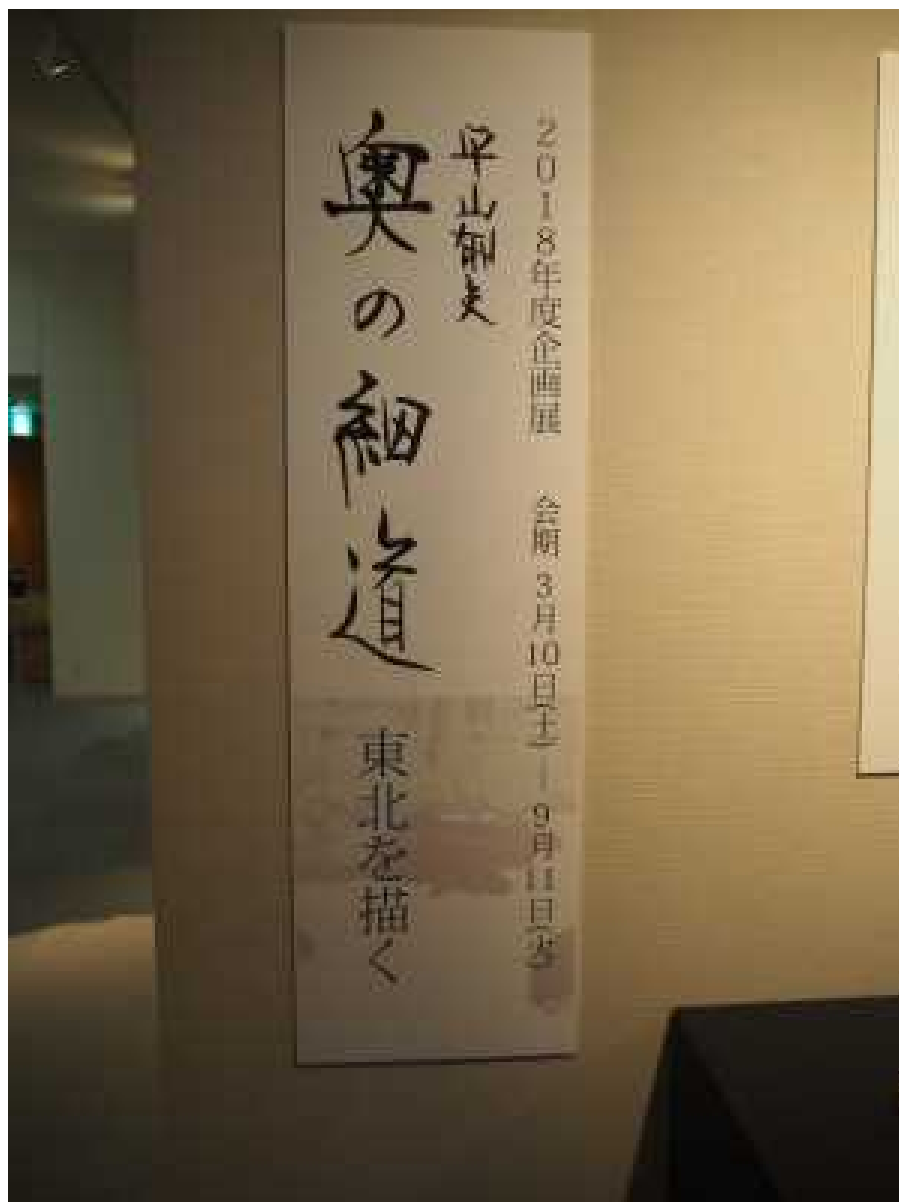 2018年度企画展 会期 3月10日(土)―9月11日(火)
平山郁夫
奥の細道 東北を描く